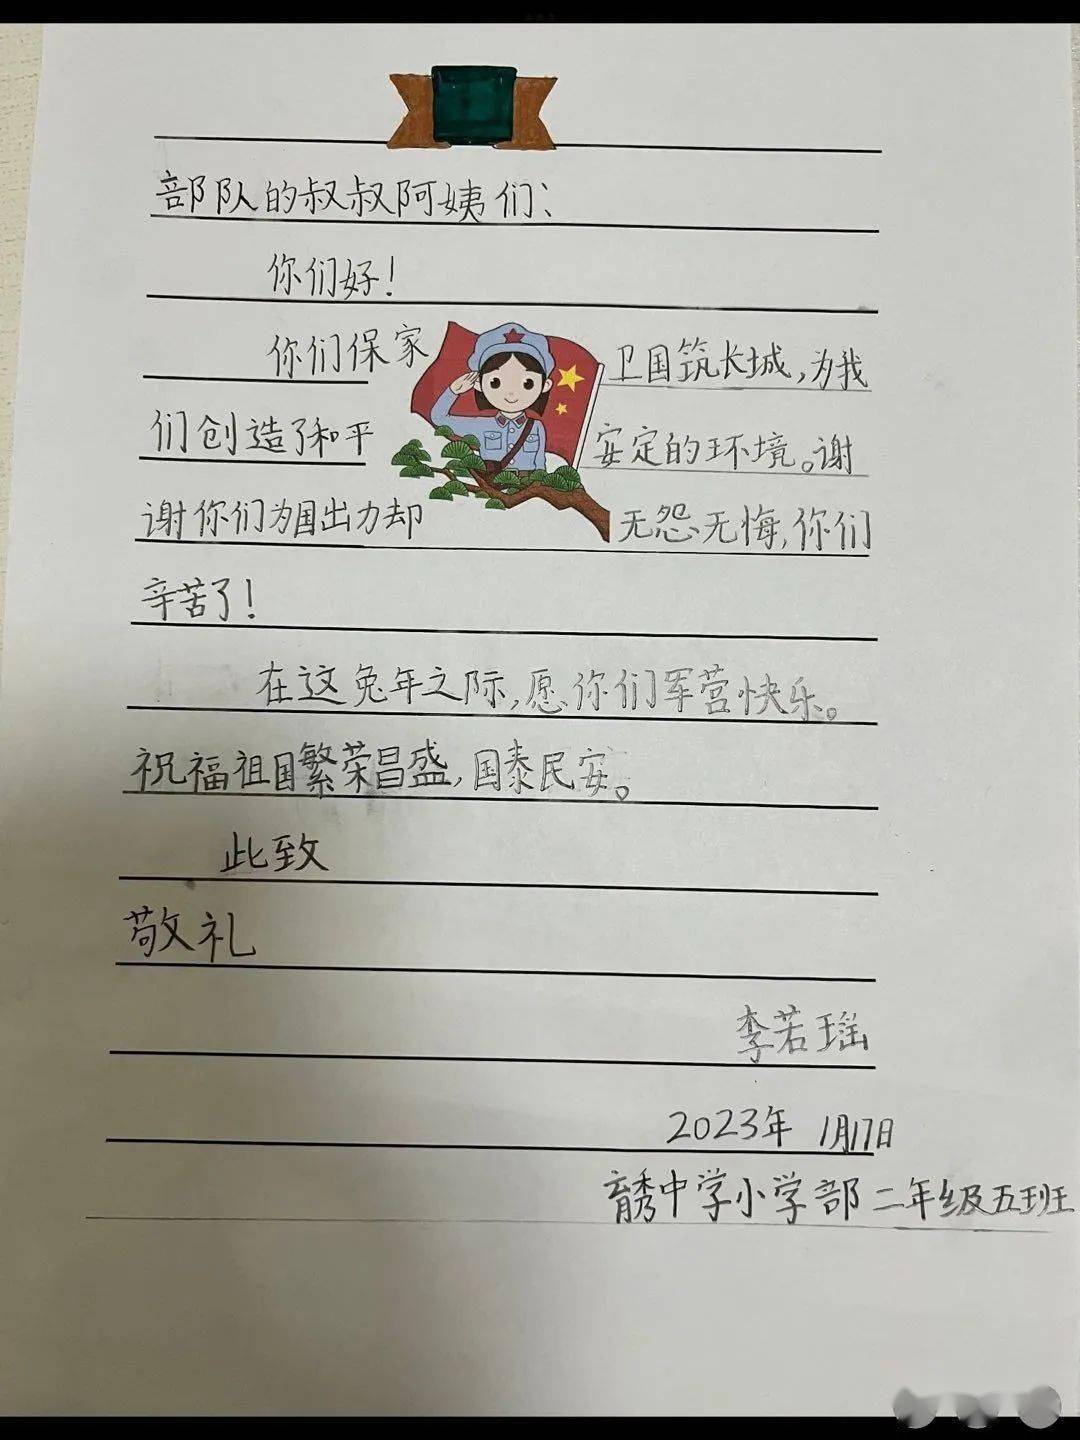 部队的叔叔阿姨们：
你们好！
你们保家卫国筑长城，为我
们创造了和平安定的环境。谢
谢你们为国出力却无怨无悔，你们
辛苦了！
在这兔年之际，愿你们军营快乐。
祝福祖国繁荣昌盛，国泰民安。
此致
敬礼
李若瑶
2023年 1月17日
育秀中学小学部二年级五班